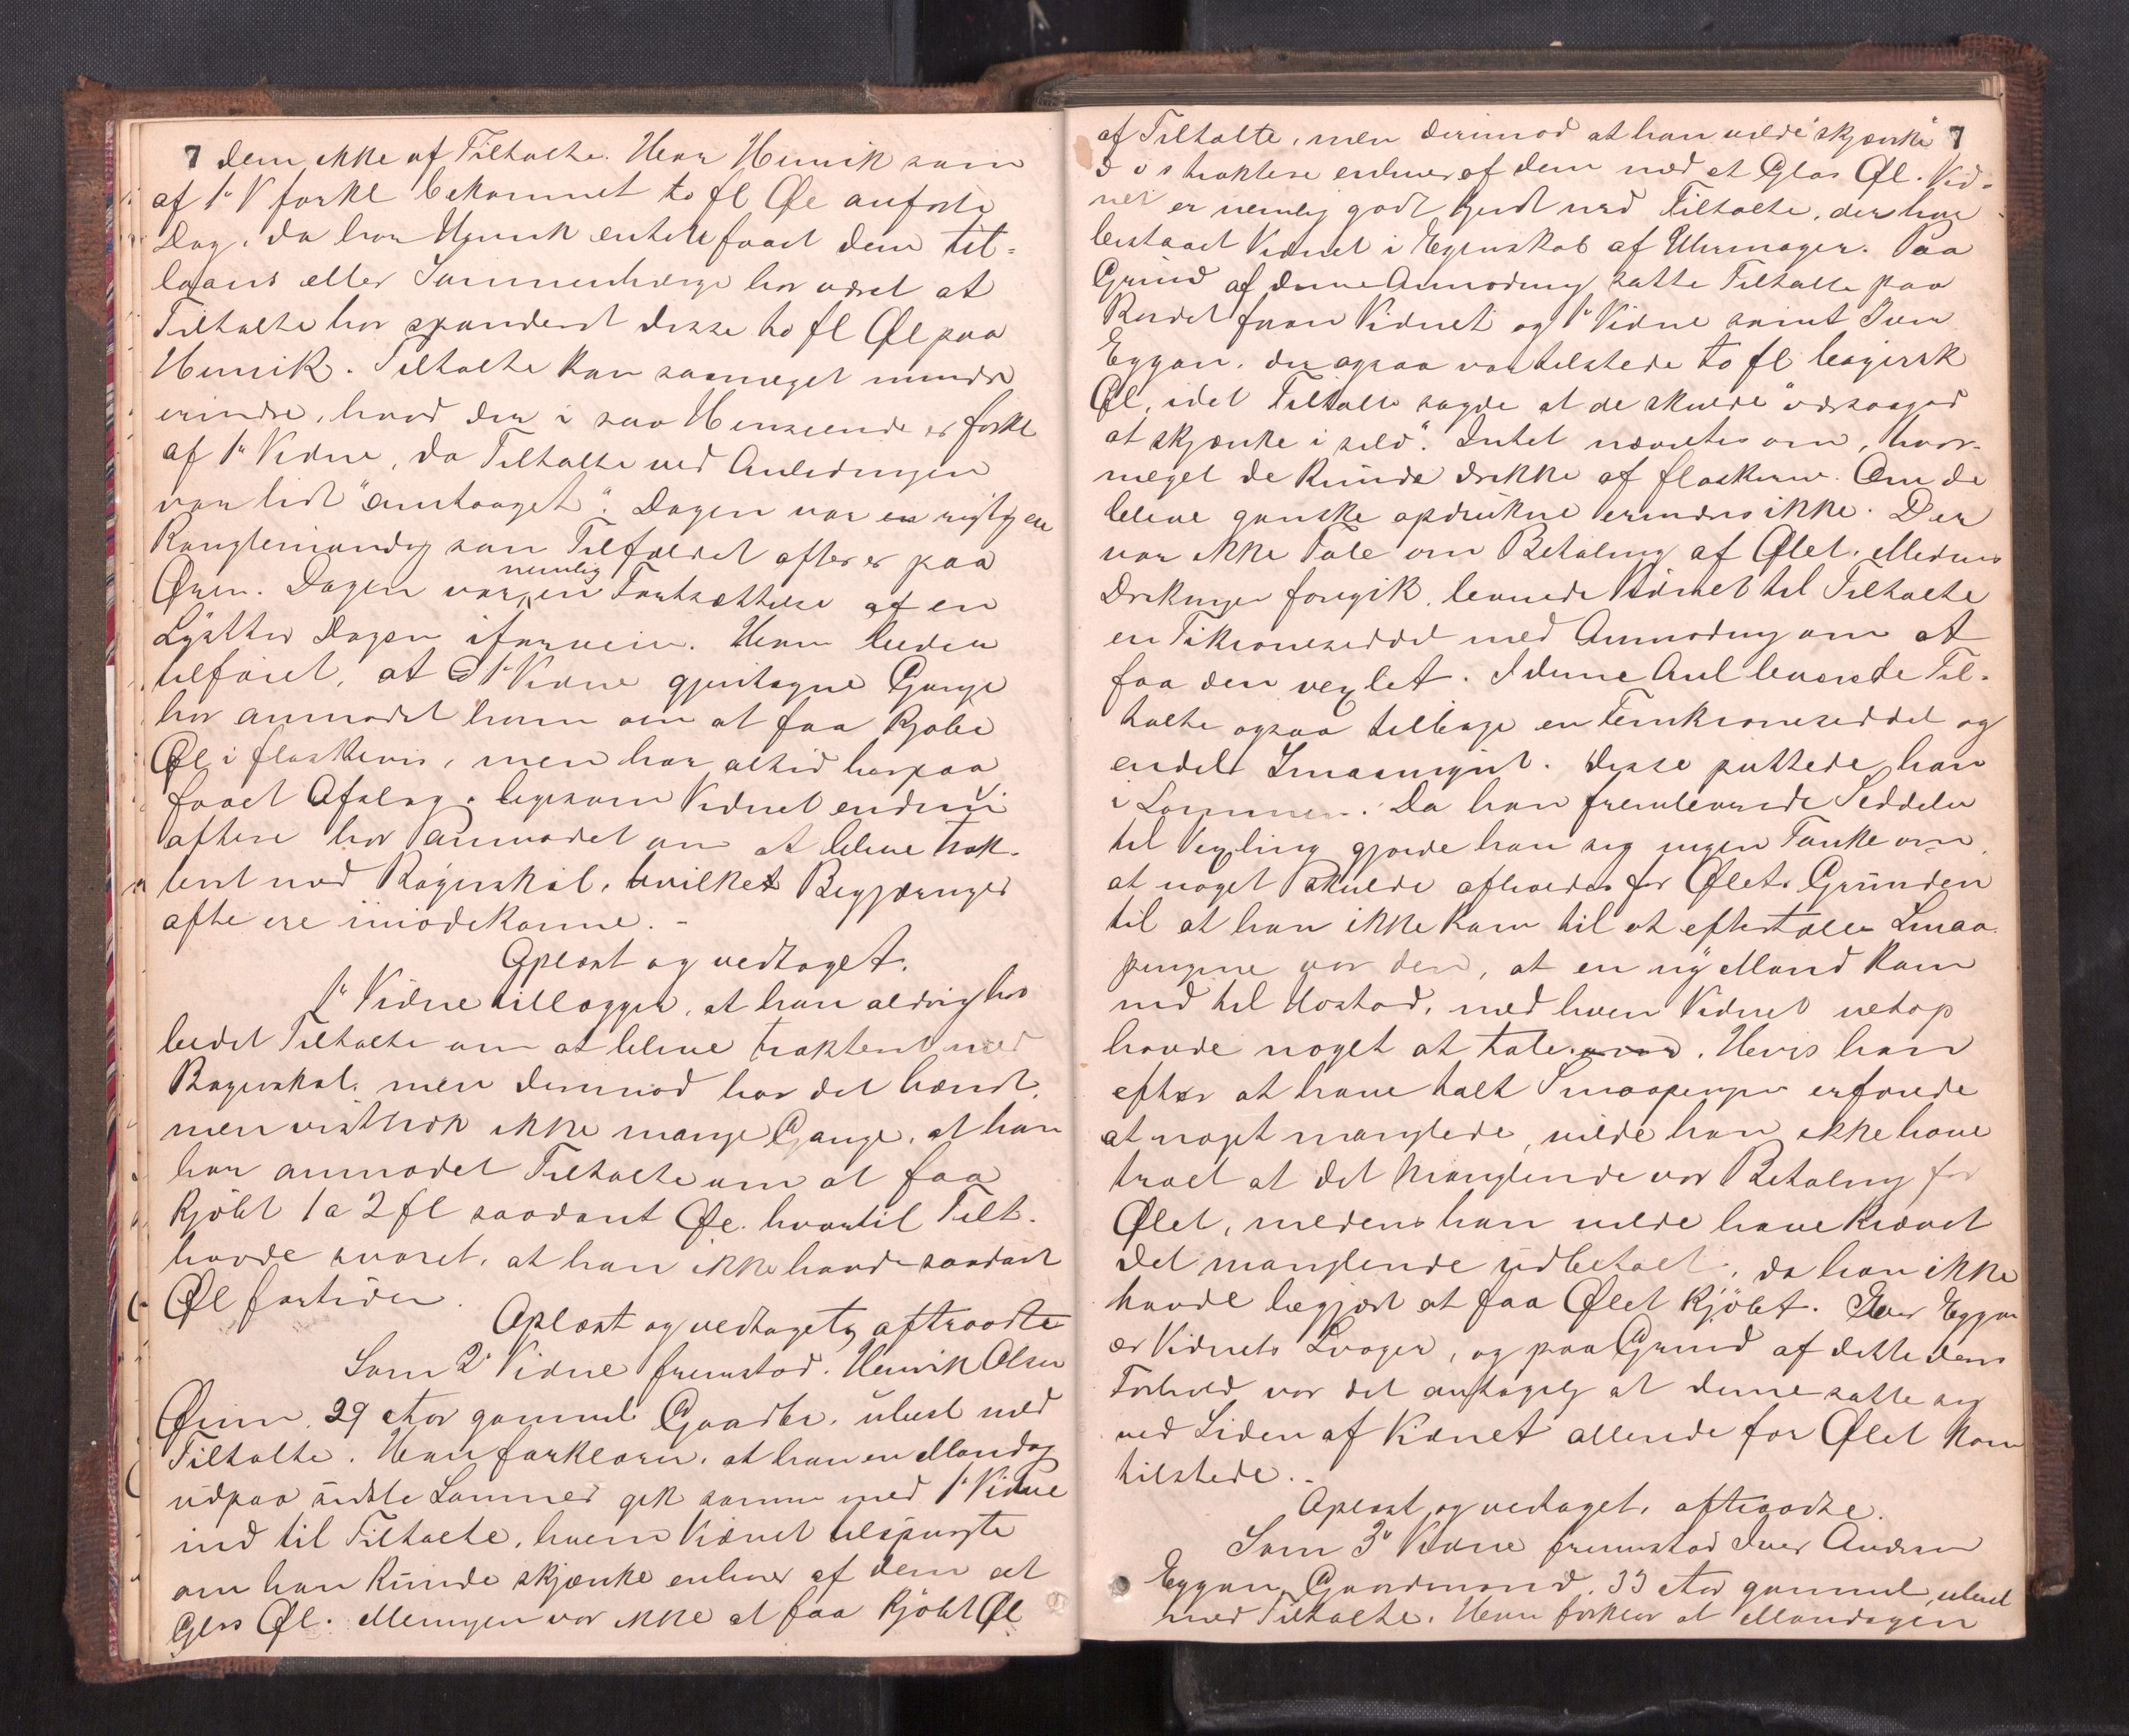 7 dem ikke af Tiltalte. Har Henrik som
af 1' V forkl bekommet to fl Øl anførte
Dag, da har Henrik enten faaet dem til-
laans eller Sammenhænge har været at
Tiltalte har spanderet disse to fl Øl paa
Henrik. Tiltalte kan saameget mindre
erindre, hvad der i saa Henseende er forkl
af 1' Vidne, da Tiltalte ved Anledningen
var lidt "omtaaget". Dagen var en rigtig en
Ranglemandag som Tilfældet ofte er paa
Øren. Dagen var nemlig en Fortsættelse af en
Lystter Dagen iforveien. Han leden
tilføiet, at 1' Vidne gjentagne Gange
har anmodet ham om at faa kjøbe
Øl i flaskevis, men har altid herpaa
faaet Afslag, ligesom Vidnet endnu
oftere har anmodet om at blive trak-
teret med Bayerskøl, hvilket Begjæringer
ofte ere imødekomne. -
Oplæst og vedtaget.
1' Vidne tillægger, at han aldrig har
bedet Tiltalte om at blive trakteret med
Bayerskøl, men derimod har det hændt,
men visthok ikke mange Gange, at han
har anmodet Tiltalte om at faa
kjøbt 1 a 2 fl saadant Øl. hvortil Tilt.
havde svaret, at han ikke havde saadant
Øl fortiden.
Oplæst og vedtaget og aftraadte
Som 2' Vidne fremstod. Henrik Olsen
Øren, 29 Aar gammel Gaardbr. ubesl med
Tiltalte. Han forklarer, at han en Mandag
udpaa sidste Sommer gik sammen med 1' Vidne
ind til Tiltalte, hvem Vidnet tilspurgte
om han kunde skjænke enhver af dem et
Glas Øl. Meningen var ikke at faa kjøbt Øl
af Tiltalte, men derimod at han vilde "skjænke" 7
d v s traktere enhver af dem med et Glas Øl. Vid-
net er nemlig godt kjendt med Tiltalte, der har
bistaaet Vidnet i Egenskab af Uhrmager. Paa
Grund af denne Anmodning satte Tiltalte paa
Bordet foran Vidnet og 1' Vidne samt Iver
Eggan, der ogsaa var tilstede to fl baiersk
Øl, idet Tiltalte sagde at de skulde "værsaagod
at skjænke i selv". Intet nævntes om, hvor-
meget de kunde drikke af flaskerne. Om de
bleve ganske opdrukne erindres ikke. Der
var ikke Tale om Betaling af Ølet. Medens
Drikningen foregik, leverede Vidnet til Tiltalte
en Tikroneseddel med Anmodning om at
faa den vexlet. I denne Anl leverede Til-
talte ogsaa tilbage en Femkroneseddel og
endel Smaamynt. Disse puttede han
i Lommen. Da han fremleverede Seddelen
til Vexling gjorde han sig ingen Tanke om,
at noget skulde afholdes for Ølet. Grunden
til at han ikke kom til at eftertælle Smaa-
pengene var den, at en ny Mand kom
ind til Hostad, med hvem Vidnet netop
havde noget at tale. Hvis han
efter at have talt Smaapenge erfarede
at noget manglede, vilde han ikke have
troet at det Manglende var Betaling for
Ølet, medens han vilde have krævet
det manglende udbetalt, da han ikke
havde begjært at faa Ølet kjøbt. Iver Eggan
er Vidnets Svoger, og paa Grund af dette deres
Forhold var det antagelig at denne satte sig
ved Siden af Vidnet allerede før Ølet kom
tilstede. -
Oplæst og vedtaget, aftraadte.
Som 3' Vidne fremstod Iver Andersen
Eggan, Gaardmand, 33 Aar gammel, ubesl
med Tiltalte. Han forklar at Mandagen